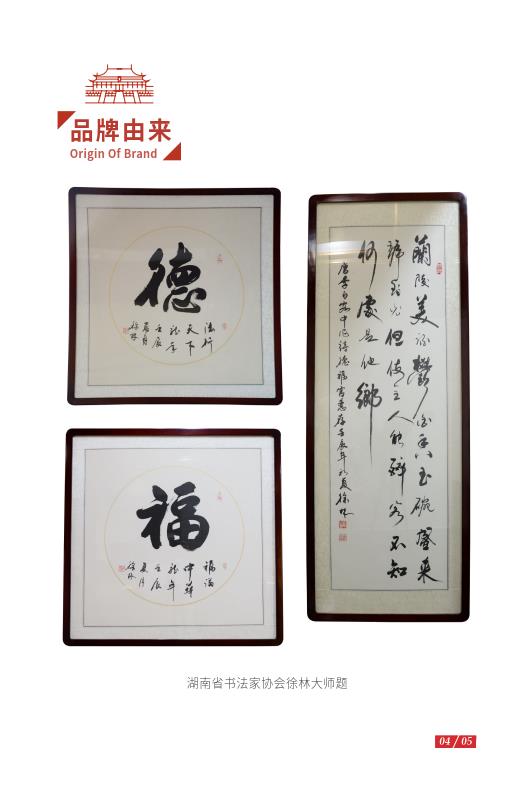 品牌由来
Origin Of Brand
德
德行
天下
龙年
壬辰
夏月
徐林
福
福满
中华
龙年
壬辰
夏月
徐林
蘭陵美酒鬱金香玉碗盛来
琥珀光但使主人能醉客不知
何處是他鄉
唐李白客中作得德福宫意存壬辰年初夏徐林
湖南省书法家协会徐林大师题
04 / 05